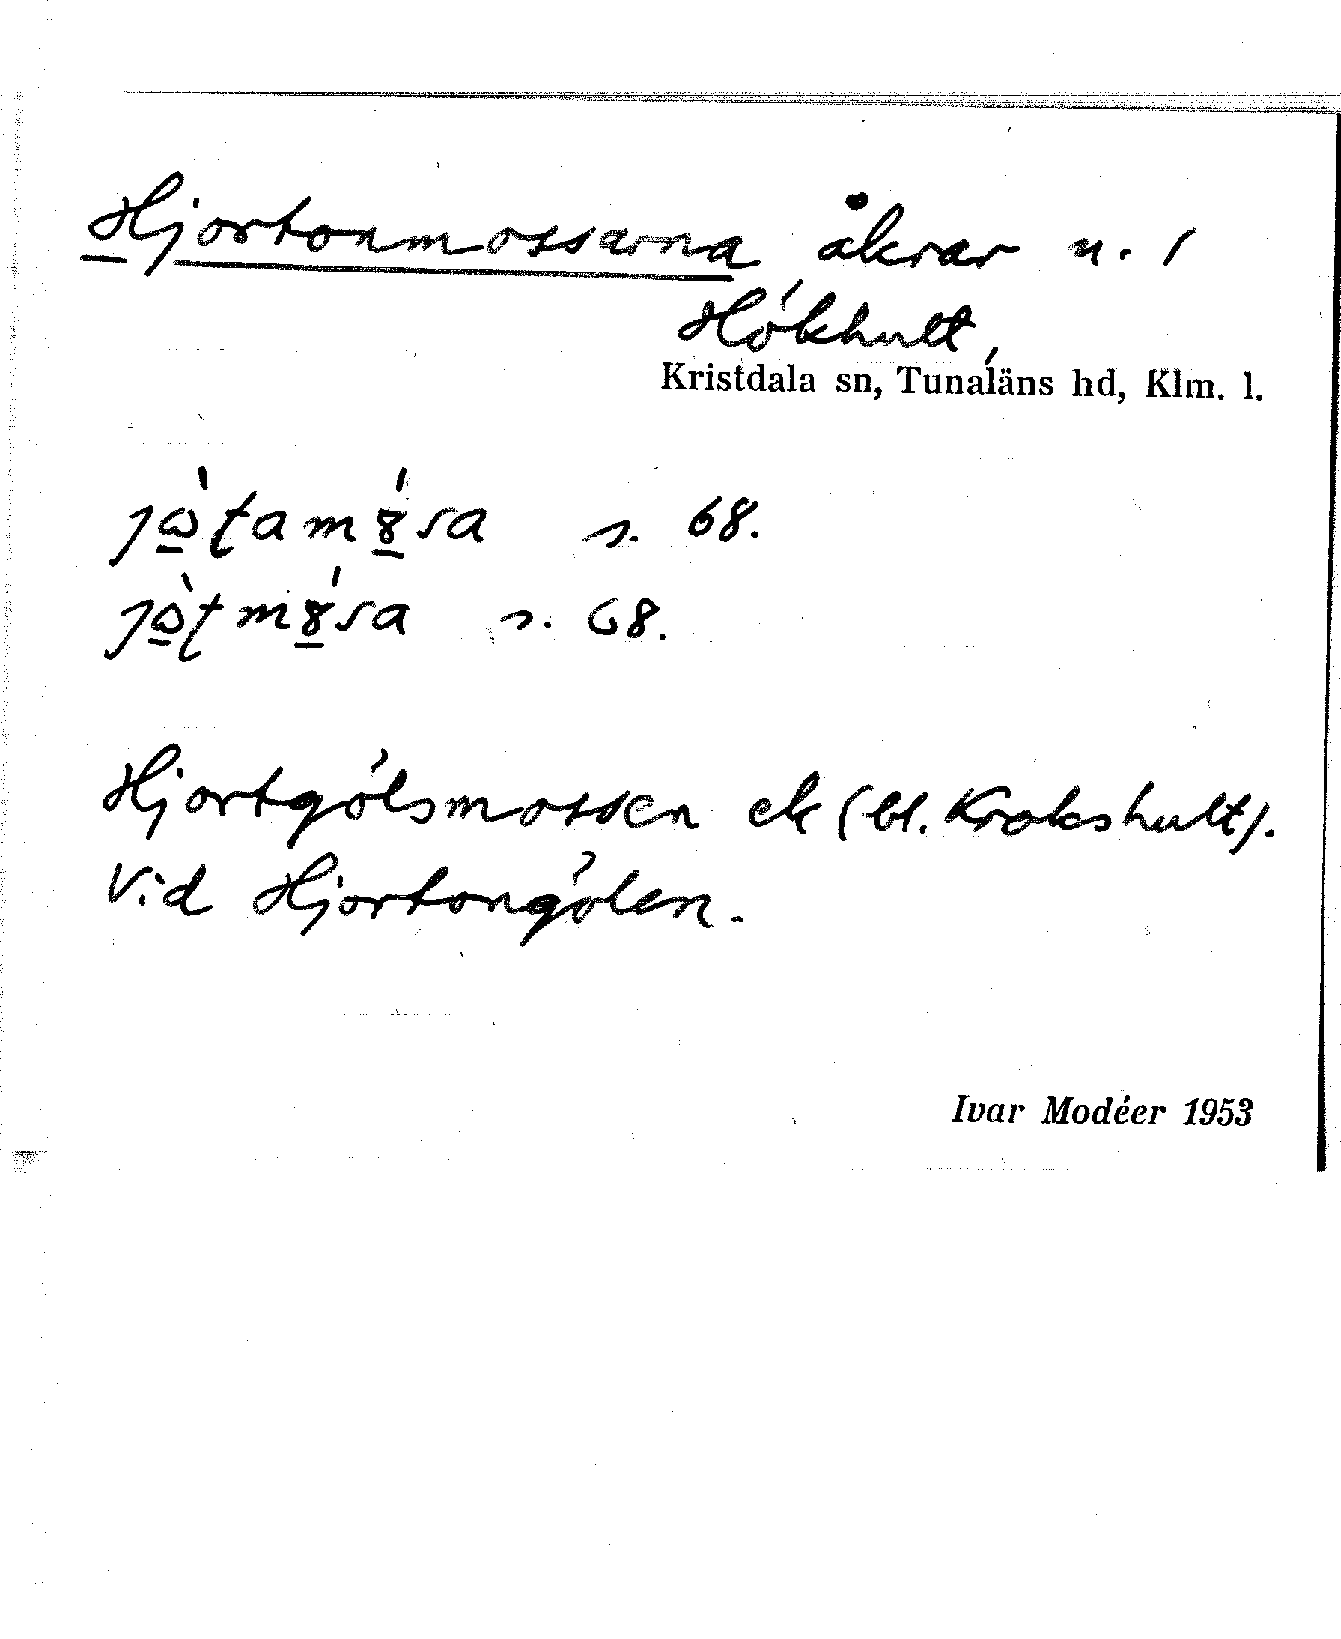 Hjortonmossarna åkrar n. 1
Hökhult,
Kristdala sn, Tunaläns hd, Klm. l.
s. 68.
s. 68.
Hjortgölsmossen ek (bl. Krokshult).
Vid Hjortongölen.
Ivar Modéer 1953